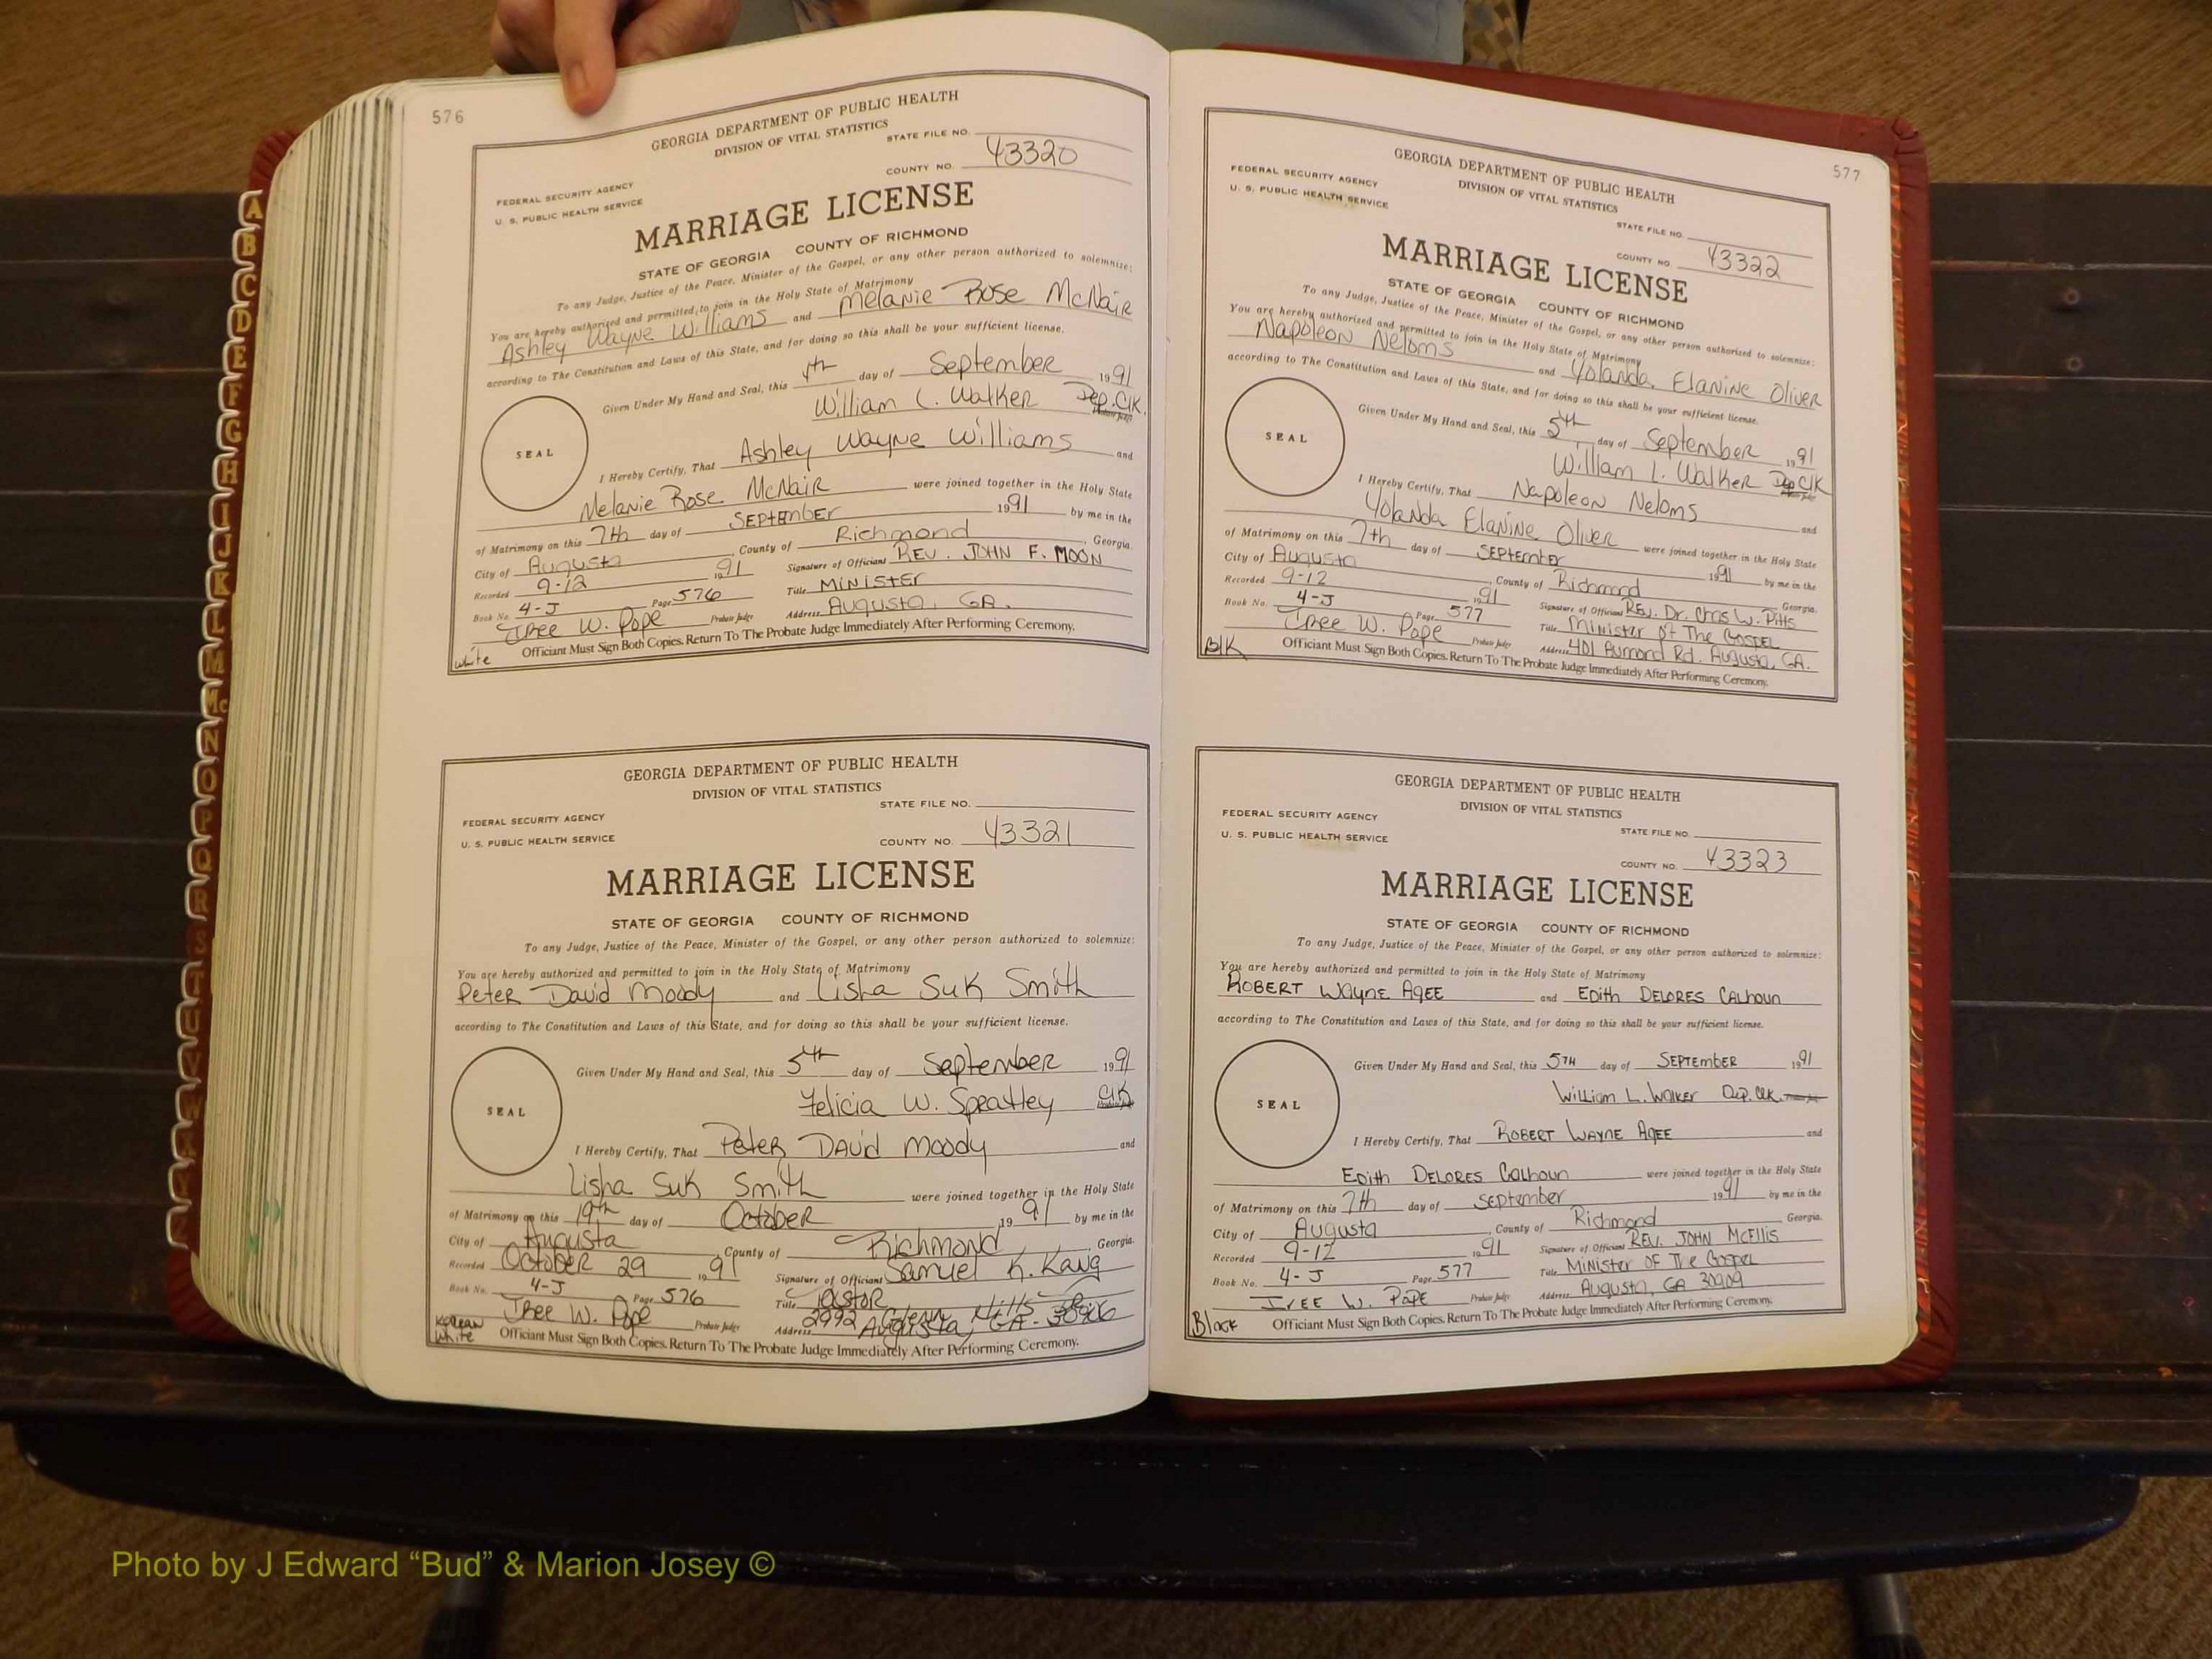 576
GEORGIA DEPARTMENT OF PUBLIC HEALTH
DIVISION OF VITAL STATISTICS
STATE FILE NO.
FEDERAL SECURITY AGENCY
COUNTY NO. 43320
U. S. PUBLIC HEALTH SERVICE
MARRIAGE LICENSE
STATE OF GEORGIA COUNTY OF RICHMOND
To any Judge, Justice of the Peace, Minister of the Gospel, or any other person authorized to solemnize:
You are hereby authorized and permitted to join in the Holy State of Matrimony
Ashley Wayne Williams and Melanie Rose McNair
according to The Constitution and Laws of this State, and for doing so this shall be your sufficient license.
Given Under My Hand and Seal, this 4th day of September 1991
William L. Walker Dep. Clk.
SEAL
I Hereby Certify, That Ashley Wayne Williams and
Melanie Rose McNair were joined together in the Holy State
of Matrimony on this 7th day of September 1991 by me in the
City of Augusta, County of Richmond, Georgia.
Recorded 9-12 1991 Signature of Officiant Rev. John F. Moon
Book No. 4-J Page 576 Title Minister
Isree W. Pope Probate Judge Address Augusta, GA.
white Officiant Must Sign Both Copies. Return To The Probate Judge Immediately After Performing Ceremony.
GEORGIA DEPARTMENT OF PUBLIC HEALTH
DIVISION OF VITAL STATISTICS
STATE FILE NO.
FEDERAL SECURITY AGENCY
U. S. PUBLIC HEALTH SERVICE COUNTY NO. 43321
MARRIAGE LICENSE
STATE OF GEORGIA COUNTY OF RICHMOND
To any Judge, Justice of the Peace, Minister of the Gospel, or any other person authorized to solemnize:
You are hereby authorized and permitted to join in the Holy State of Matrimony
Peter David Moody and Lisha Suk Smith
according to The Constitution and Laws of this State, and for doing so this shall be your sufficient license.
Given Under My Hand and Seal, this 5th day of September 1991
Felicia W. Spratley Clk
SEAL
I Hereby Certify, That Peter David Moody and
Lisha Suk Smith were joined together in the Holy State
of Matrimony on this 19th day of October 1991 by me in the
City of Augusta, County of Richmond, Georgia.
Recorded October 29 1991 Signature of Officiant Samuel K. Kang
Book No. 4-J Page 576 Title Pastor
Isree W. Pope Probate Judge Address 2992 Glenn Hills Dr. Augusta, GA- 30906
Korean
white Officiant Must Sign Both Copies. Return To The Probate Judge Immediately After Performing Ceremony.
577
GEORGIA DEPARTMENT OF PUBLIC HEALTH
DIVISION OF VITAL STATISTICS
FEDERAL SECURITY AGENCY
U. S. PUBLIC HEALTH SERVICE
STATE FILE NO.
COUNTY NO. 43322
MARRIAGE LICENSE
STATE OF GEORGIA COUNTY OF RICHMOND
To any Judge, Justice of the Peace, Minister of the Gospel, or any other person authorized to solemnize:
You are hereby authorized and permitted to join in the Holy State of Matrimony
Napoleon Neloms and Yolanda Elanine Oliver
according to The Constitution and Laws of this State, and for doing so this shall be your sufficient license.
Given Under My Hand and Seal, this 5th day of September 1991
William L. Walker Dep Clk
SEAL
I Hereby Certify, That Napoleon Neloms and
Yolanda Elanine Oliver were joined together in the Holy State
of Matrimony on this 7th day of September 1991 by me in the
City of Augusta, County of Richmond, Georgia.
Recorded 9-12 1991 Signature of Officiant Rev. Dr. Chas W. Pitts
Book No. 4-J Page 577 Title Minister of The Gospel
Isree W. Pope Probate Judge Address 401 Aumond Rd. Augusta, GA.
Blk Officiant Must Sign Both Copies. Return To The Probate Judge Immediately After Performing Ceremony.
GEORGIA DEPARTMENT OF PUBLIC HEALTH
DIVISION OF VITAL STATISTICS
FEDERAL SECURITY AGENCY
STATE FILE NO.
U. S. PUBLIC HEALTH SERVICE
COUNTY NO. 43323
MARRIAGE LICENSE
STATE OF GEORGIA COUNTY OF RICHMOND
To any Judge, Justice of the Peace, Minister of the Gospel, or any other person authorized to solemnize:
You are hereby authorized and permitted to join in the Holy State of Matrimony
Robert Wayne Agee and Edith Delores Calhoun
according to The Constitution and Laws of this State, and for doing so this shall be your sufficient license.
Given Under My Hand and Seal, this 5TH day of September 1991
William L. Walker Dep. Clk.
SEAL
I Hereby Certify, That Robert Wayne Agee and
Edith Delores Calhoun were joined together in the Holy State
of Matrimony on this 7th day of September 1991 by me in the
City of Augusta, County of Richmond Georgia.
Recorded 9-12 1991 Signature of Officiant Rev. John McEllis
Book No. 4-J Page 577 Title Minister of The Gospel
Isree W. Pope Probate Judge Address Augusta, GA 30909
Black Officiant Must Sign Both Copies. Return To The Probate Judge Immediately After Performing Ceremony.
A
B
C
D
E
F
G
H
I
J
K
L
M
Mc
N
O
P
Q
R
S
T
U
V
W
Photo by J Edward “Bud” & Marion Josey ©